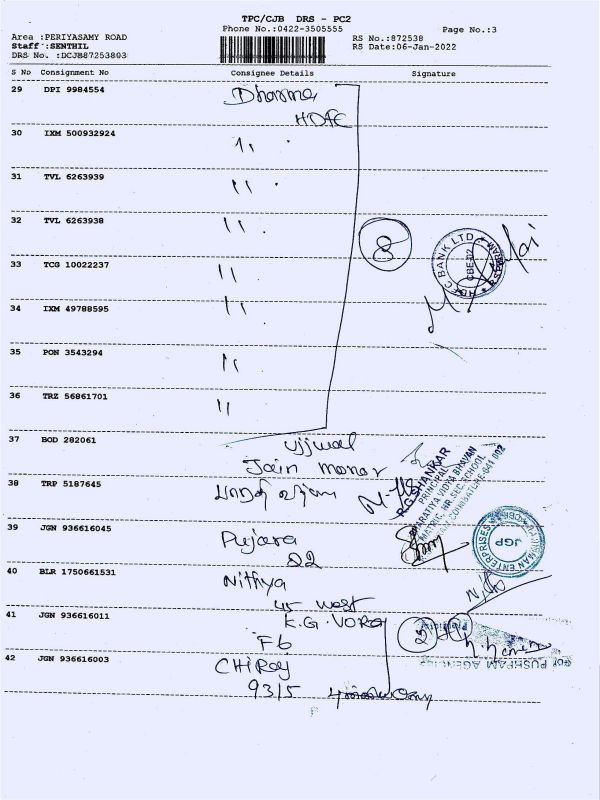 TPC/CJB DRS - PC2
Phone No.:0422-3505555
Page No.:3
Area :PERIYASAMY ROAD
Staff :SENTHIL
DRS No. :DCJB87253803
RS No.:872538
RS Date:06-Jan-2022
S No Consignment No Consignee Details Signature
29 DPI 9984554 Dharma
HDFC
30 IXM 500932924 "
31 TVL 6263939 "
32 TVL 6263938 "
8
HDFC BANK LTD.
CBE-02
33 TCG 10022237 "
34 IXM 49788595 "
35 PON 3543294 "
36 TRZ 56861701 "
37 BOD 282061 Ujjwal
Jain manor
38 TRP 5187645
R.G.SHANKAR
PRINCIPAL
BHARATIYA VIDYA BHAVAN
MATRIC. HR.SEC.SCHOOL
COIMBATORE-641 002
39 JGN 936616045 Pujara
22
ENTERPRISES
JGP
40 BLR 1750661531 Nithya
45 west
41 JGN 936616011 K.G. VORA
F6
2
For PUSHPAM AGENCIES
42 JGN 936616003 CHIRAG
9315